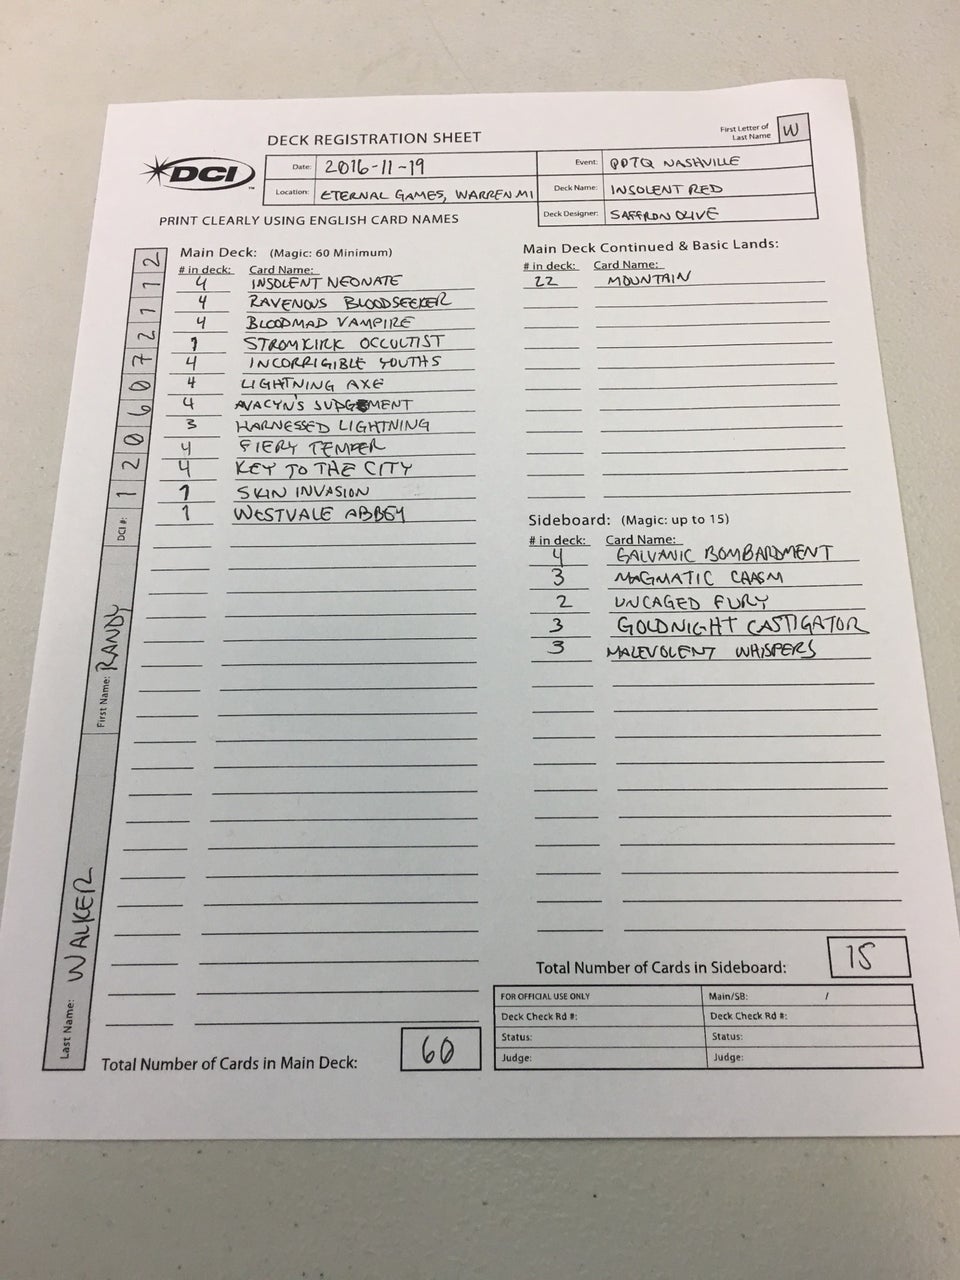 DECK REGISTRATION SHEET
First Letter of
Last Name
W
DCI
™
Date: 2016-11-19
Event: PPTQ NASHVILLE
Location: ETERNAL GAMES, WARREN MI
Deck Name: INSOLENT RED
Deck Designer: SAFFRON OLIVE
PRINT CLEARLY USING ENGLISH CARD NAMES
DCI #: 1 2 0 6 0 7 2 1 1 2
First Name: RANDY
Last Name: WALKER
Main Deck: (Magic: 60 Minimum)
# in deck: Card Name:
4 INSOLENT NEONATE
4 RAVENOUS BLOODSEEKER
4 BLOODMAD VAMPIRE
1 STROMKIRK OCCULTIST
4 INCORRIGIBLE YOUTHS
4 LIGHTNING AXE
4 AVACYN'S JUDGEMENT
3 HARNESSED LIGHTNING
4 FIERY TEMPER
4 KEY TO THE CITY
1 SKIN INVASION
1 WESTVALE ABBEY
Total Number of Cards in Main Deck: 60
Main Deck Continued & Basic Lands:
# in deck: Card Name:
22 MOUNTAIN
Sideboard: (Magic: up to 15)
# in deck: Card Name:
4 GALVANIC BOMBARDMENT
3 MAGMATIC CHASM
2 UNCAGED FURY
3 GOLDNIGHT CASTIGATOR
3 MALEVOLENT WHISPERS
Total Number of Cards in Sideboard: 15
FOR OFFICIAL USE ONLY
Main/SB: /
Deck Check Rd #:
Deck Check Rd #:
Status:
Status:
Judge:
Judge: